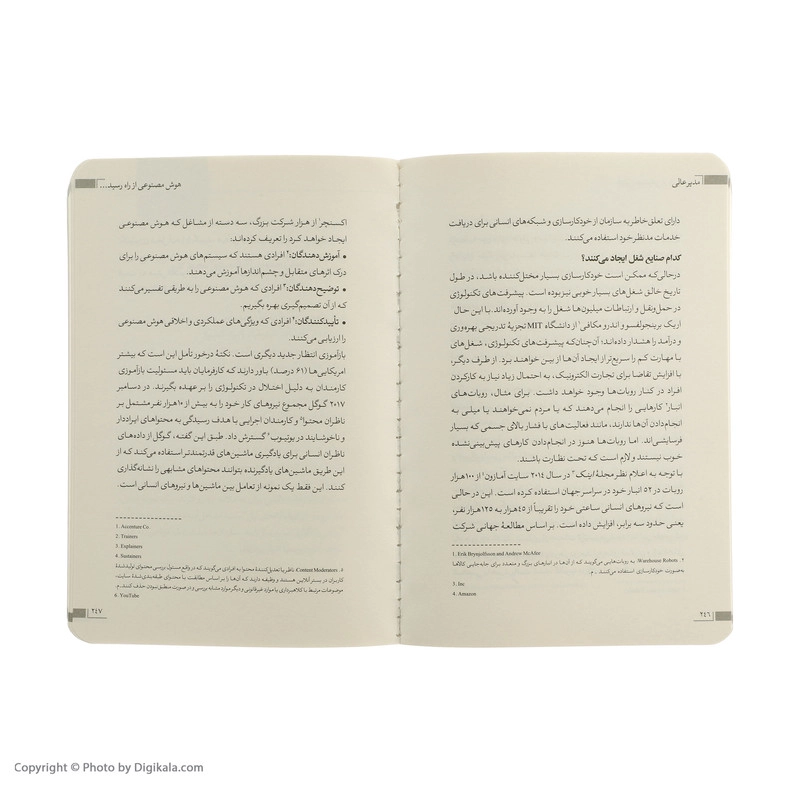 مدیر عالی
دارای تعلق خاطر به سازمان از خودکارسازی و شبکه‌های انسانی برای دریافت
خدمات مدنظر خود استفاده می‌کنند.
کدام صنایع شغل ایجاد می‌کنند؟
درحالی‌که ممکن است خودکارسازی بسیار مختل‌کننده باشد، در طول
تاریخ خالق شغل‌های بسیار خوبی نیز بوده است. پیشرفت‌های تکنولوژی
در حمل‌ونقل و ارتباطات میلیون‌ها شغل را به وجود آورده‌اند. با این حال
اریک برینجولفسو و اندرو مکافی۱ از دانشگاه MIT تجزیۀ تدریجی بهره‌وری
و درآمد را هشدار داده‌اند؛ آن‌چنان‌که پیشرفت‌های تکنولوژی، شغل‌های
با مهارت کم را سریع‌تر از ایجاد آن‌ها از بین خواهند برد. از طرف دیگر،
با افزایش تقاضا برای تجارت الکترونیک، به احتمال زیاد نیاز به کار کردن
افراد در کنار روبات‌ها وجود خواهد داشت. برای مثال، روبات‌های
انبار۲ کارهایی را انجام می‌دهند که یا مردم نمی‌خواهند یا میلی به
انجام‌دادن آن‌ها ندارند، مانند فعالیت‌های با فشار بالای جسمی که بسیار
فرسایشی‌اند. اما روبات‌ها هنوز در انجام‌دادن کارهای پیش‌بینی‌نشده
خوب نیستند و لازم است که تحت نظارت باشند.
با توجه به اعلام نظر مجلۀ اینک۳ در سال ۲۰۱۴ سایت آمازون۴ از ۱۰۰هزار
روبات در ۵۲ انبار خود در سراسر جهان استفاده کرده است. این در حالی
است که نیروهای انسانی ساعتی خود را تقریباً از ۴۵هزار به ۱۲۵هزار نفر،
یعنی حدود سه برابر، افزایش داده است. بر اساس مطالعۀ جهانی شرکت
1. Erik Brynjolfsson and Andrew McAfee
۲. Warehouse Robots: به روبات‌هایی می‌گویند که از آن‌ها در انبارهای بزرگ و متعدد برای جابه‌جایی کالاها
به‌صورت خودکارسازی استفاده می‌کنند. ـ م.
3. Inc
4. Amazon
۲۴۶
هوش مصنوعی از راه رسید...
اکسنچر۱ از هزار شرکت بزرگ، سه دسته از مشاغل که هوش مصنوعی
ایجاد خواهد کرد را تعریف کرده‌اند:
• آموزش‌دهندگان:۲ افرادی هستند که سیستم‌های هوش مصنوعی را برای
درک اثرهای متقابل و چشم‌اندازها آموزش می‌دهند.
• توضیح‌دهندگان:۳ افرادی که هوش مصنوعی را به طریقی تفسیر می‌کنند
که از آن تصمیم‌گیری بهره بگیریم.
• تأییدکنندگان:۴ افرادی که ویژگی‌های عملکردی و اخلاقی هوش مصنوعی
را ارزیابی می‌کنند.
بازآموزی انتظار جدید دیگری است. نکتۀ درخور تأمل این است که بیشتر
امریکایی‌ها (۶۱ درصد) باور دارند که کارفرمایان باید مسئولیت بازآموزی
کارمندان به دلیل اختلال در تکنولوژی را بر عهده بگیرند. در دسامبر
۲۰۱۷ گوگل مجموع نیروهای کار خود را به بیش از ۱۰هزار نفر مشتمل بر
ناظران محتوا۵ و کارمندان اجرایی با هدف رسیدگی به محتواهای ایراددار
و ناخوشایند در یوتیوب۶ گسترش داد. طبق این گفته، گوگل از داده‌های
ناظران انسانی برای یادگیری ماشین‌های قدرتمندتر استفاده می‌کند که از
این طریق ماشین‌های یادگیرنده بتوانند محتواهای مشابهی را نشانه‌گذاری
کنند. این فقط یک نمونه از تعامل بین ماشین‌ها و نیروهای انسانی است.
1. Accenture Co.
2. Trainers
3. Explainers
4. Sustainers
۵. Content Moderators: ناظر یا تعدیل‌کنندۀ محتوا به افرادی می‌گویند که در واقع مسئول بررسی محتوای تولیدشدۀ
کاربران در بستر آنلاین هستند و وظیفه دارند که آن‌ها را بر اساس مطابقت با محتوای طبقه‌بندی‌شدۀ سایت،
موضوعات مرتبط با کلاهبرداری یا موارد غیرقانونی و دیگر موارد مشابه بررسی و در صورت منطبق نبودن حذف کنند. ـ م.
6. YouTube
۲۴۷
Copyright © Photo by Digikala.com